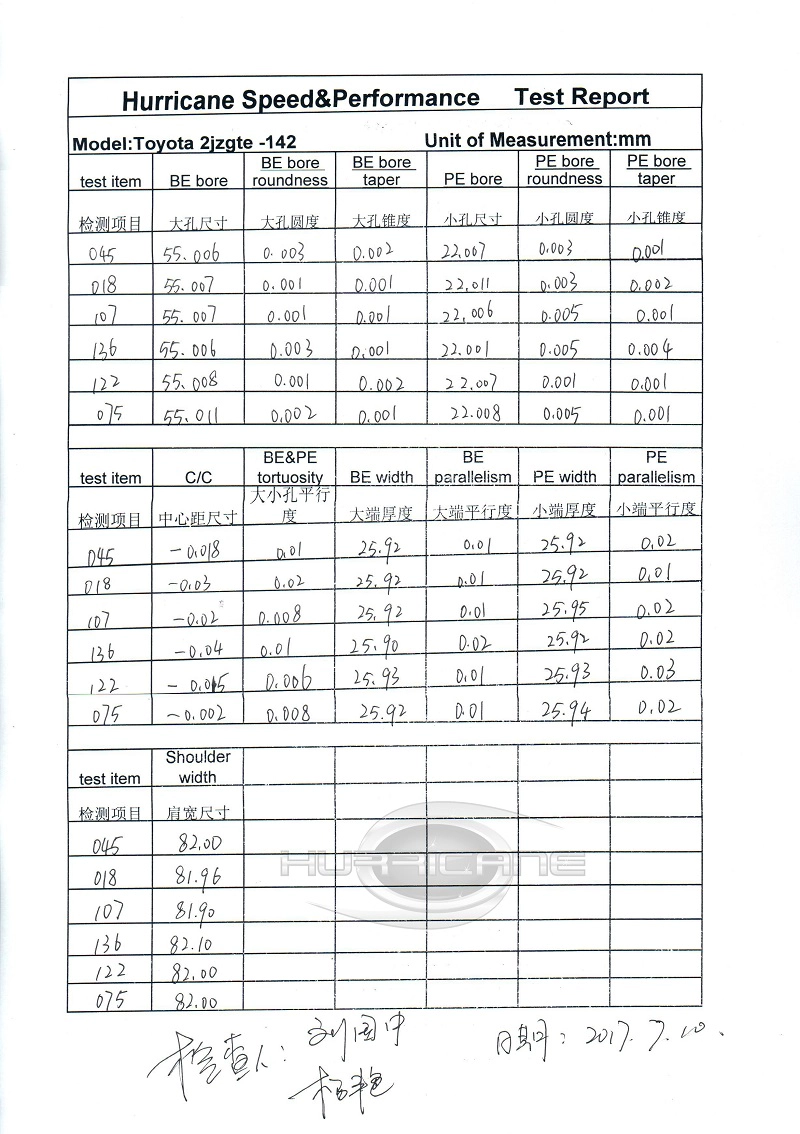 Hurricane Speed&Performance Test Report
Model:Toyota 2jzgte -142 Unit of Measurement:mm
test item BE bore BE bore roundness BE bore taper PE bore PE bore roundness PE bore taper
检测项目 大孔尺寸 大孔圆度 大孔锥度 小孔尺寸 小孔圆度 小孔锥度
045 55.006 0.003 0.002 22.007 0.003 0.001
018 55.007 0.001 0.001 22.011 0.003 0.002
107 55.007 0.001 0.001 22.006 0.005 0.001
136 55.006 0.003 0.001 22.001 0.005 0.004
122 55.008 0.001 0.002 22.007 0.001 0.001
075 55.011 0.002 0.001 22.008 0.005 0.001
test item C/C BE&PE tortuosity BE width BE parallelism PE width PE parallelism
检测项目 中心距尺寸 大小孔平行度 大端厚度 大端平行度 小端厚度 小端平行度
045 -0.018 0.01 25.92 0.01 25.92 0.02
018 -0.03 0.02 25.92 0.01 25.92 0.01
107 -0.02 0.008 25.92 0.01 25.95 0.02
136 -0.04 0.01 25.90 0.02 25.92 0.02
122 -0.015 0.006 25.93 0.01 25.93 0.03
075 -0.002 0.008 25.92 0.01 25.94 0.02
test item Shoulder width
检测项目 肩宽尺寸
045 82.00
018 81.96
107 81.90
136 82.10
122 82.00
075 82.00
HURRICANE
检查人: 刘国中 日期: 2017.7.10.